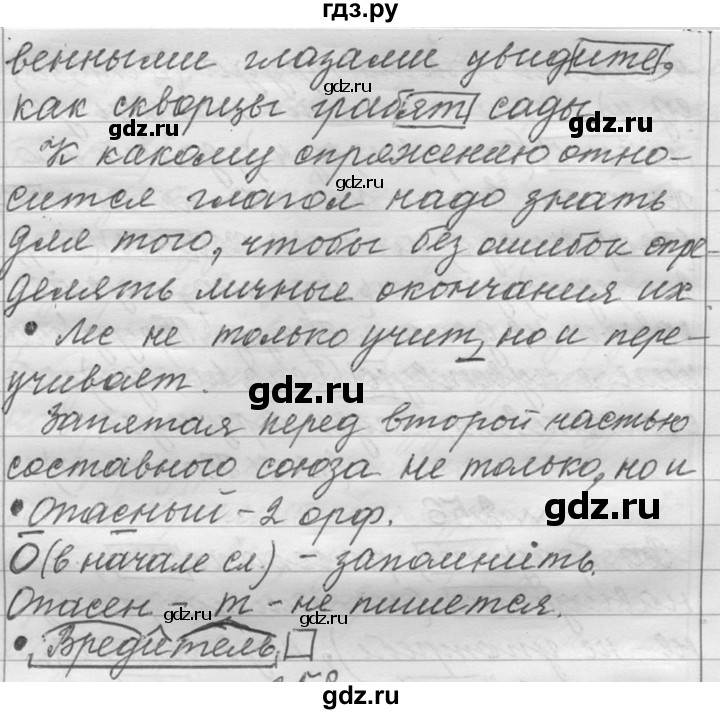 гдз.ру
венными глазами увидите,
gdz.ru
как скворцы грабят сады
gdz.ru
gdz.ru
К какому спряжению отно-
gdz.ru
сится глагол надо знать
для того, чтобы без ошибок опре-
делять личные окончания их
• Лес не только учит, но и пере-
gdz.ru
учивает.
Запятая перед второй частью
составного союза не только, но и
gdz.ru
• Опасный - 2 орф.
О (в начале сл.) - запомнить.
Опасен - т - не пишется.
• Вредитель
gdz.ru